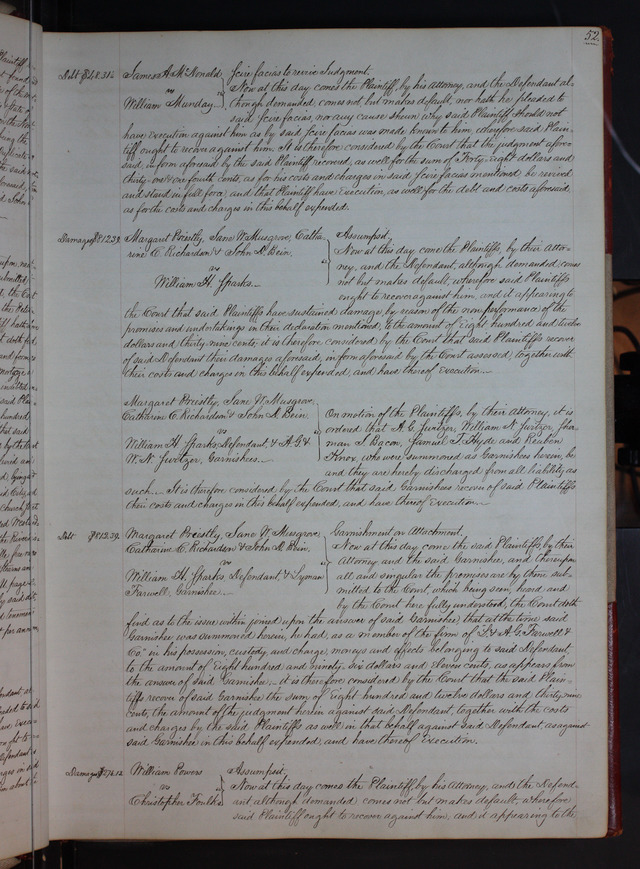 52.
Debt $48.31¼ James A. McDonald, Scire facias to revive Judgment.
vs Now at this day comes the Plaintiff, by his Attorney, and the Defendant al-
William Munday. though demanded, comes not, but makes default, nor hath he pleaded to
said Scire facias, nor any cause shewn why said Plaintiff should not
have execution against him as by said Scire facias was made known to him, wherefore said Plain-
tiff ought to recover against him. It is therefore considered by the Court that the judgment afore-
said, in form aforesaid by the said Plaintiff recovered, as well for the sum of Forty-eight dollars and
thirty-one & one fourth cents, as for his costs and charges in said Scire facias mentioned, be revived
and stand in full force; and that Plaintiff have execution, as well for the debt and costs aforesaid
as for the costs and charges in this behalf expended.
Damages $812.39. Margaret Priestly, Jane W. Musgrove, Catha- Assumpsit.
rine C. Richardson & John D. Bein, Now at this day come the Plaintiffs, by their Attor-
vs ney, and the Defendant, although demanded comes
William H. Sparks. not but makes default, wherefore said Plaintiffs
ought to recover against him, and it appearing to
the Court that said Plaintiffs have sustained damage, by reason of the non performance of the
promises and undertakings in their declaration mentioned, to the amount of Eight hundred and twelve
dollars and thirty-nine cents; it is therefore considered by the Court that said Plaintiffs recover
of said Defendant their damages aforesaid, in form aforesaid by the Court assessed, together with
their costs and charges in this behalf expended, and have thereof execution.
Margaret Priestly, Jane W. Musgrove,
Catharine C. Richardson & John D. Bein On motion of the Plaintiffs, by their Attorney, it is
vs ordered that A. G. Switzer, William N. Switzer,
William H. Sparks, Defendant, & A. G. & man J. Bacon, Samuel T. Hyde and Reuben
W. N. Switzer, Garnishees. Knox, who were summoned as Garnishees herein, be
and they are hereby discharged from all liability as
such. It is therefore considered by the Court that said Garnishees recover of said Plaintiffs
their costs and charges in this behalf expended, and have thereof execution.
Debt $812.39. Margaret Priestly, Jane W. Musgrove, Garnishment on Attachment.
Catharine C. Richardson & John D. Bein, Now at this day come the said Plaintiffs, by their
vs Attorney and the said Garnishee, and thereupon
William H. Sparks, Defendant, & Lyman all and singular the premises are by them sub-
Farwell, Garnishee. mitted to the Court, which being seen, heard and
by the Court here fully understood, the Court doth
find as to the issue within joined upon the answer of said Garnishee, that at the time said
Garnishee was summoned herein, he had, as a member of the firm of "L. & A. G. Farwell &
Co." in his possession, custody and charge, moneys and effects belonging to said Defendant,
to the amount of Eight hundred and ninety-six dollars and eleven cents, as appears from
the answer of said Garnishee; it is therefore considered by the Court that the said Plain-
tiffs recover of said Garnishee the sum of Eight hundred and twelve dollars and thirty-nine
cents, the amount of the judgment herein against said Defendant, together with the costs
and charges by the said Plaintiffs as well in that behalf against said Defendant, as against
said Garnishee in this behalf expended, and have thereof execution.
Damages William Powers Assumpsit.
vs Now at this day comes the Plaintiff, by his Attorney, and the Defend-
Christopher Foulks ant although demanded comes not but makes default, wherefore
said Plaintiff ought to recover against him; and it appearing to the